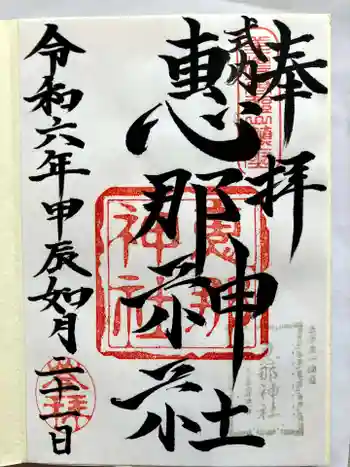 奉拝
式内
恵那神社
令和六年甲辰如月二十一日
恵那
神社
恵那神社